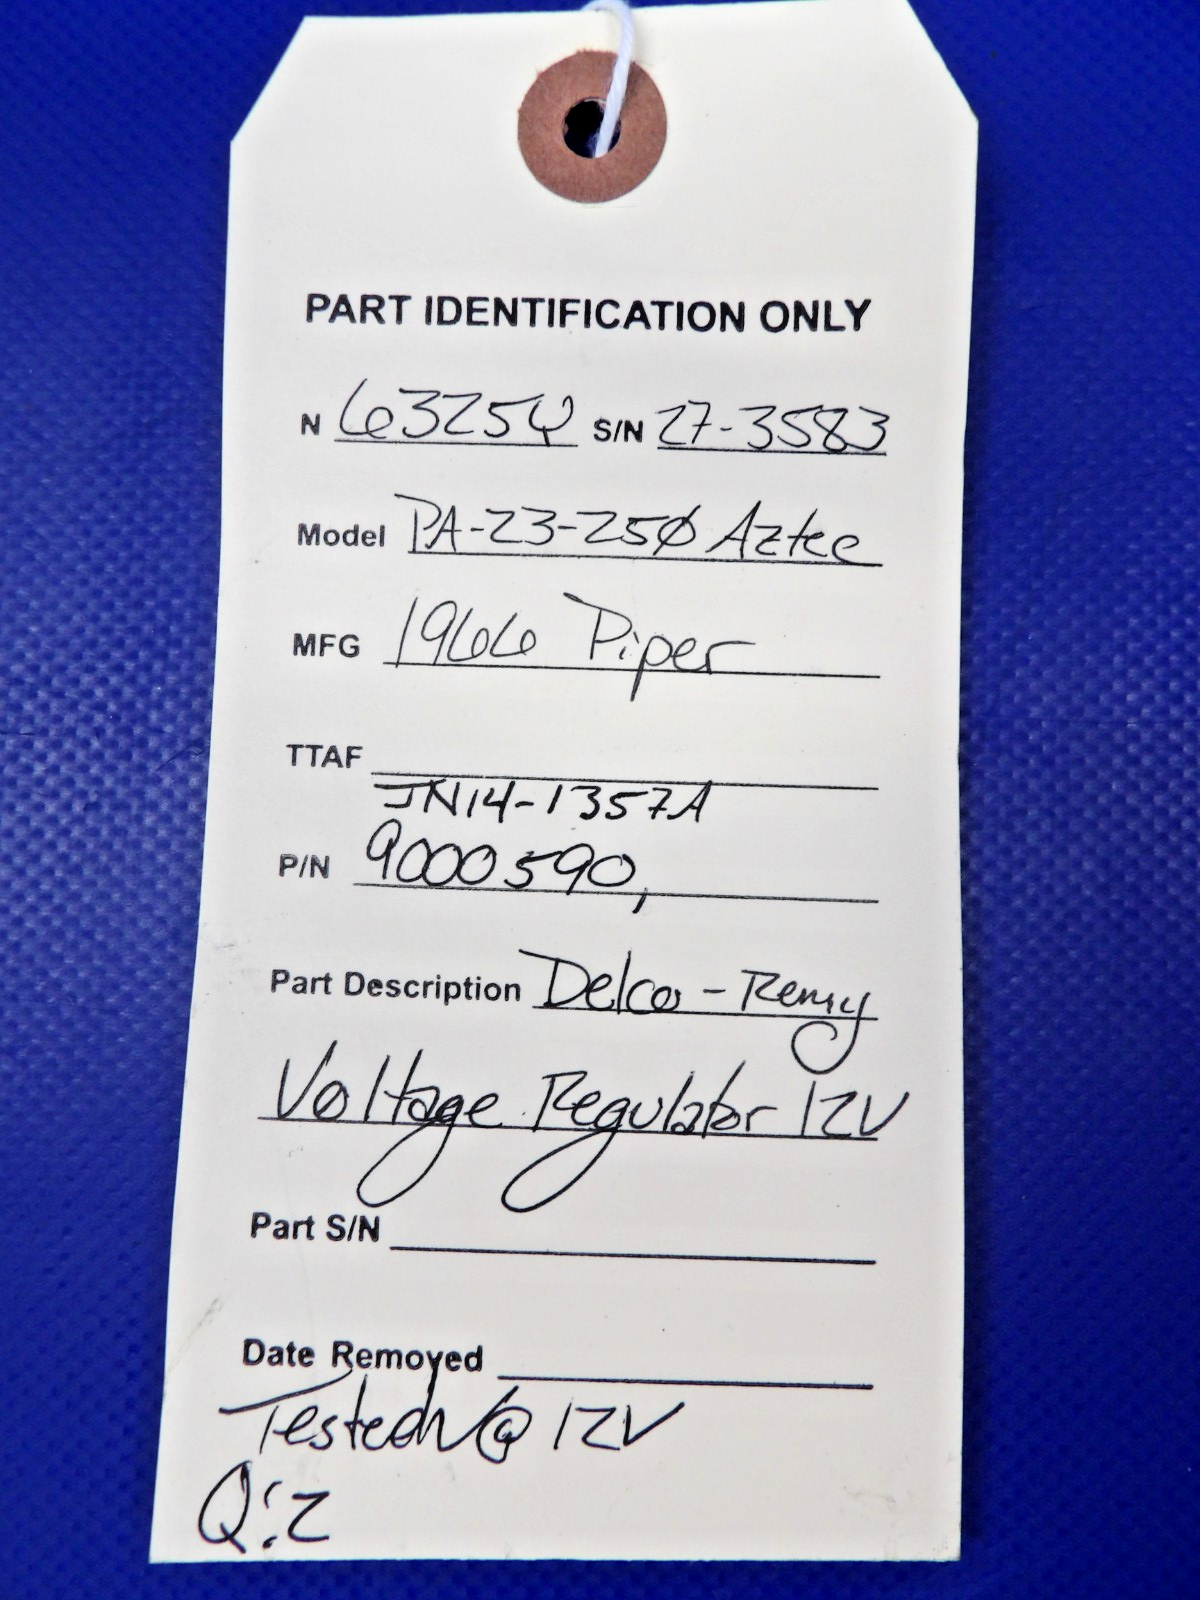 PART IDENTIFICATION ONLY
N 6325Y S/N 27-3583
Model PA-23-250 Aztec
MFG 1966 Piper
TTAF
JN14-1357A
P/N 9000590,
Part Description Delco-Remy
Voltage Regulator 12V
Part S/N
Date Removed
Tested √ @ 12V
Q:2